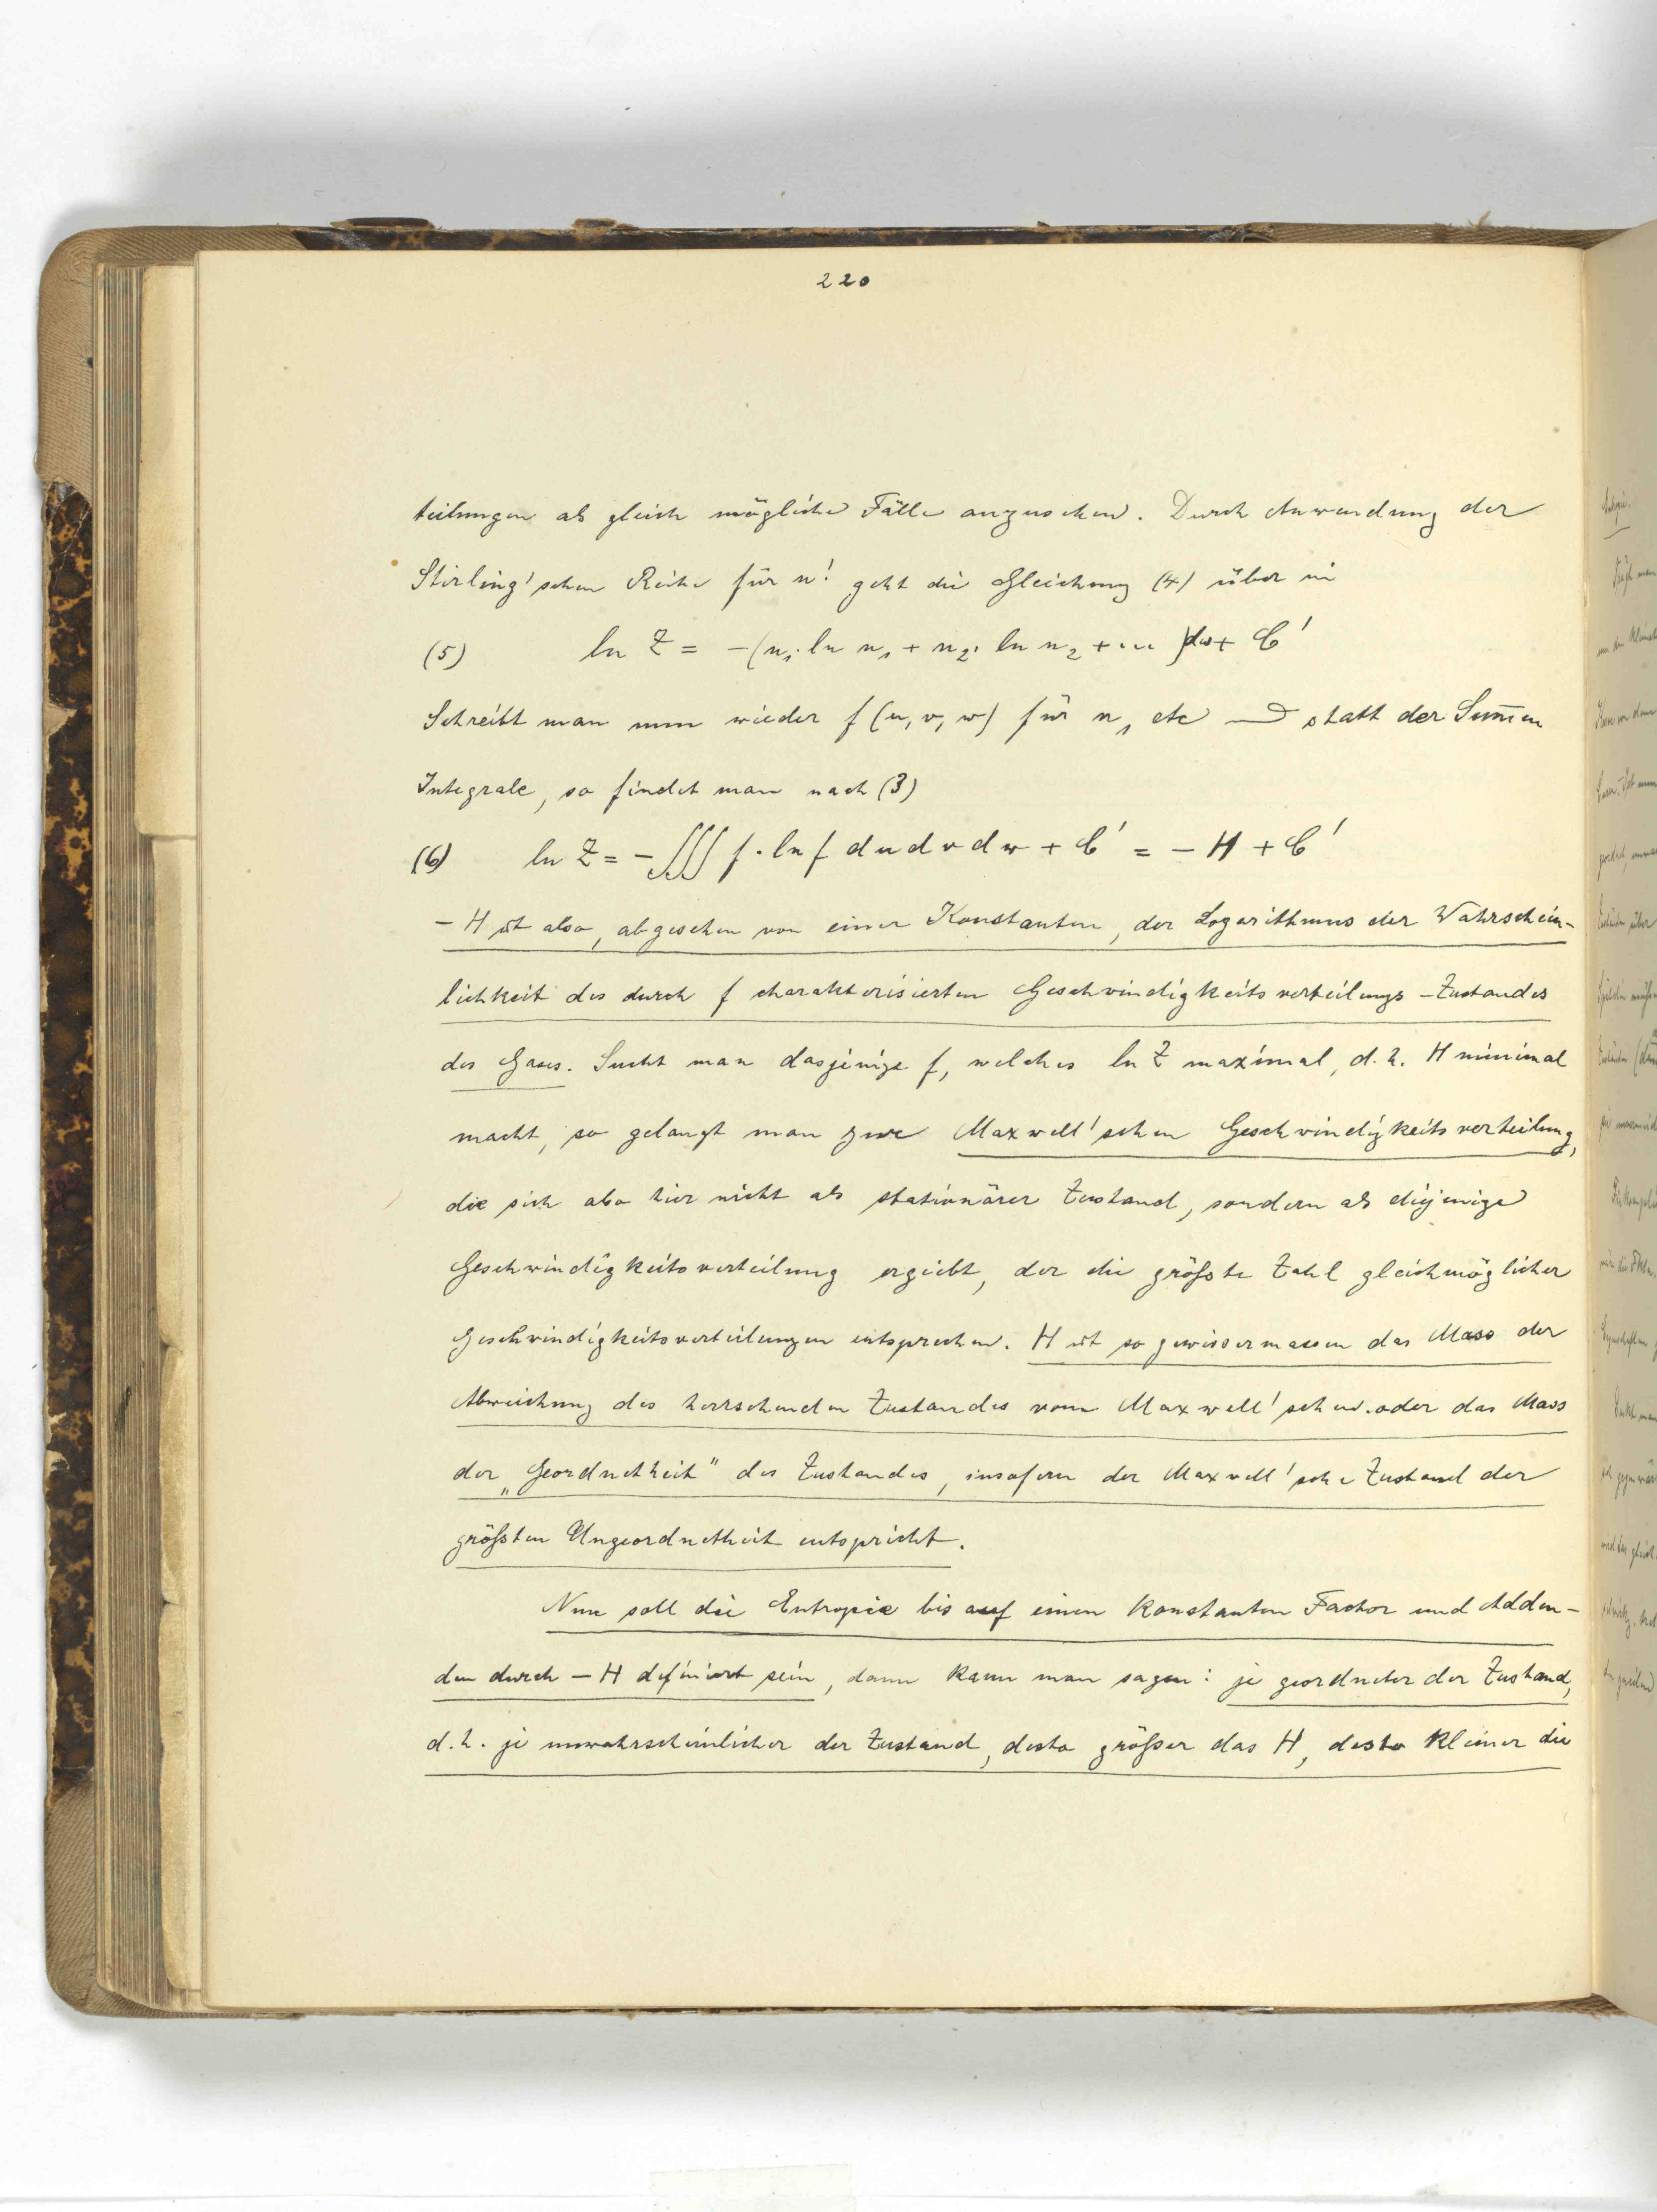 220
teilungen als gleich mögliche Fälle anzusehen. Durch Anwendung der
Stirling'schen Reihe für n! geht die Gleichung (4) über in
(5) ln Z = -(n₁ ln n₁ + n₂ ln n₂ + ...)dω + C'
Schreibt man nun wieder f(u, v, w) für n₁ etc statt der Sum̄en
Integrale, so findet man nach (3)
(6) ln Z = - ∫∫∫ f · ln f du dv dw + C' = - H + C'
- H ist also, abgesehen von einer Konstanten, der Logarithmus der Wahrschein-
lichkeit des durch f charakterisierten Geschwindigkeitsverteilungs-Zustandes
des Gases. Sucht man dasjenige f, welches ln Z maximal, d.h. H minimal
macht, so gelangt man zur Maxwell'schen Geschwindigkeitsverteilung,
die sich also hier nicht als stationärer Zustand, sondern als diejenige
Geschwindigkeitsverteilung ergiebt, der die größte Zahl gleichmöglicher
Geschwindigkeitsverteilungen entsprechen. H ist so gewissermassen das Mass der
Abweichung des herrschenden Zustandes vom Maxwell'schen oder das Mass
der „Geordnetheit" des Zustandes, insofern der Maxwell'sche Zustand der
größten Ungeordnetheit entspricht.
Nun soll die Entropie bis auf einen konstanten Factor und Adden-
den durch - H definiert sein, dann kann man sagen: je geordneter der Zustand,
d.h. je unwahrscheinlicher der Zustand, desto größer das H, desto kleiner die